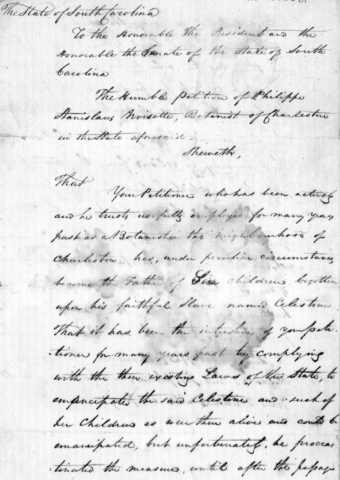 The State of South Carolina
To the Honorable the President and the
Honorable the Senate of the State of South
Carolina
The Humble Petition of Philippe
Stanislaus Noisette, Botanist of Charleston
in the State aforesaid
Sheweth,
That
Your Petitioner who has been actively
and he trusts usefully employed for many years
past as a Botanist in the neighbourhood of
Charleston has, under peculiar circumstances,
become the Father of Six children begotten
upon his faithful Slave named Celestine
That it has been the intention of your peti-
tioner for many years past by complying
with the then existing Laws of the State, to
emancipate the said Celestine and such of
her Children as were then alive and could be
emancipated, but unfortunately, he procras
tinated the measure, until after the passage